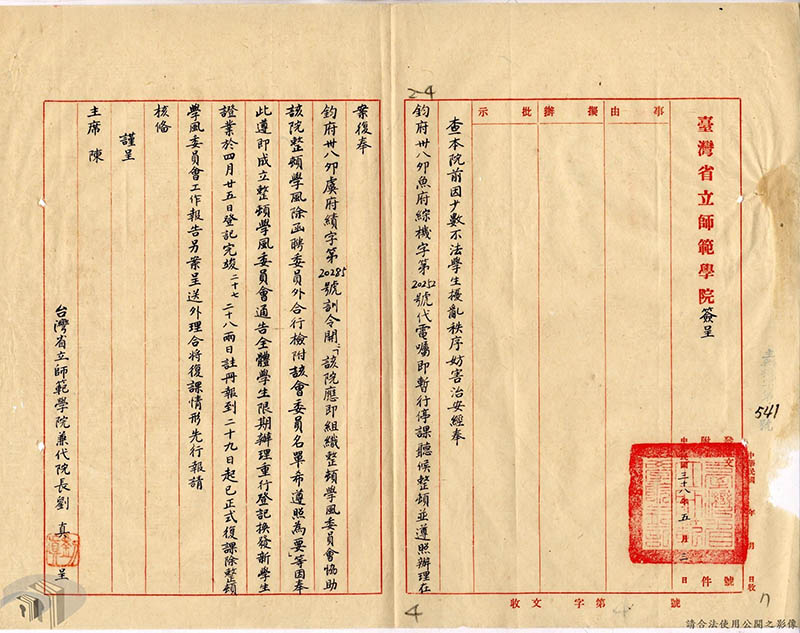 臺灣省立師範學院 簽呈
事由
擬辦
批示
發文
附件
中華民國三十八年五月二日
號
中華民國 年 月 日收
收文 字第 號
541
2-4
查本院前因少數不法學生擾亂秩序妨害治安經奉
鈞府卅八卯魚府綜機字第20252號代電囑即暫行停課聽候整頓並遵照辦理在
案復奉
鈞府卅八卯虞府績字第20285號訓令開「該院應即組織整頓學風委員會協助
該院整頓學風除函聘委員外合行檢附該會委員名單希遵照為要等因奉
此遵即成立整頓學風委員會通告全體學生限期辦理重行登記換發新學生
證業於四月廿五日登記完竣二十七二十八兩日註冊報到二十九日起已正式復課除整頓
學風委員會工作報告另案呈送外理合將復課情形先行報請
核備
謹呈
主席 陳
台灣省立師範學院兼代院長劉真 呈
4
請合法使用公開之影像